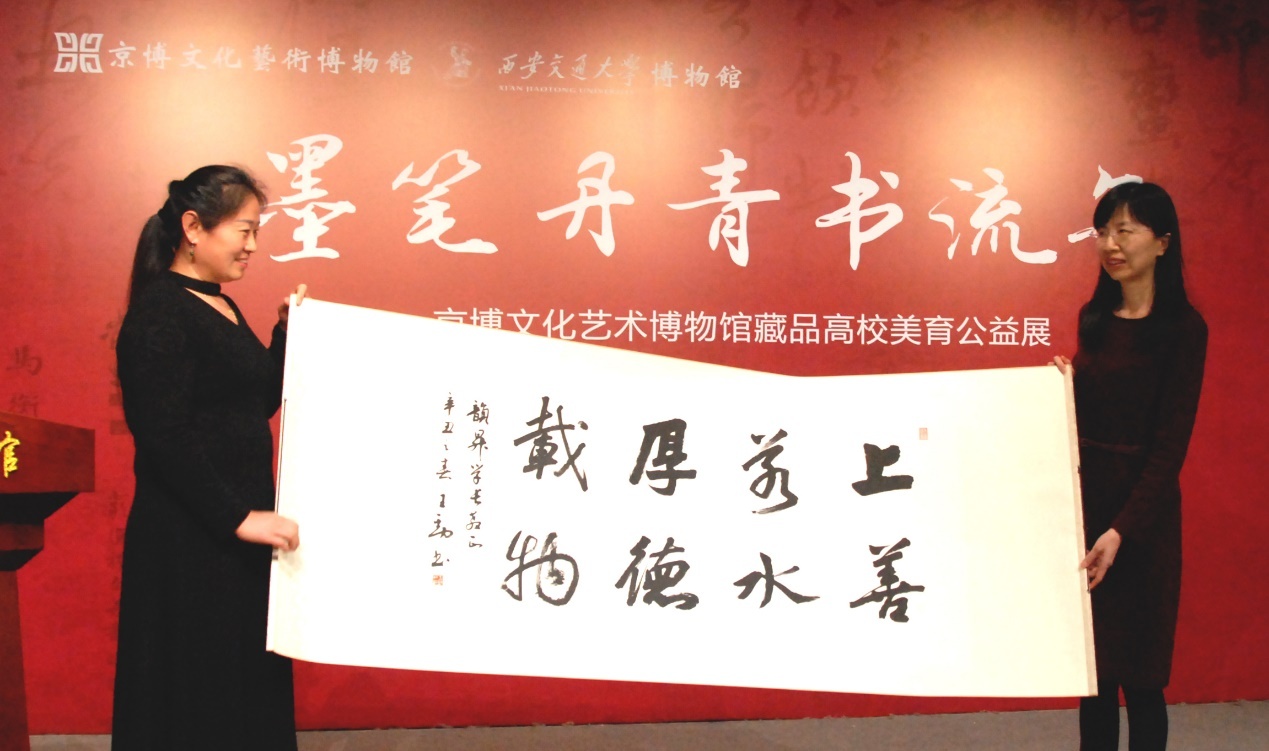 京博文化藝術博物館 西安交通大学 博物館
XI'AN JIAOTONG UNIVERSITY
墨笔丹青书流年
京博文化艺术博物馆藏品高校美育公益展
上善
若水
厚德
載物
学长
辛丑之春王
馆